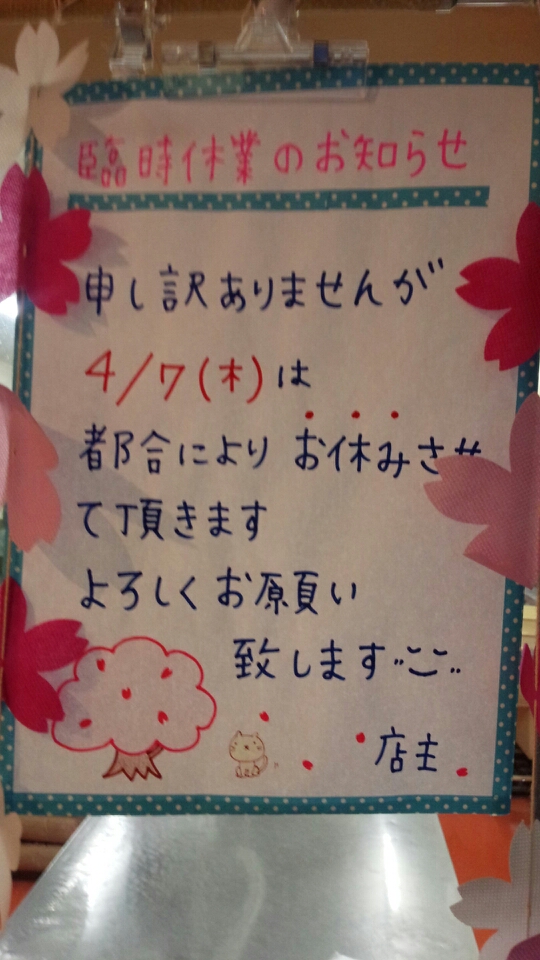 臨時休業のお知らせ
申し訳ありませんが
4/7(木)は
都合により お休みさせ
て頂きます
よろしくお願い
致します
店主